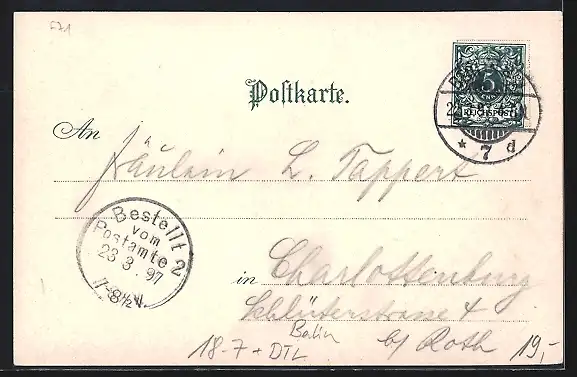 Postkarte.
5
REICHSPOST
* 7 d
An
Fräulein L. Tappert
Bestellt
vom
Postamte 2
23 3. 97
in Charlottenburg
Schlüterstrasse 4
b/ Roth
18-7 + DTL
19,-